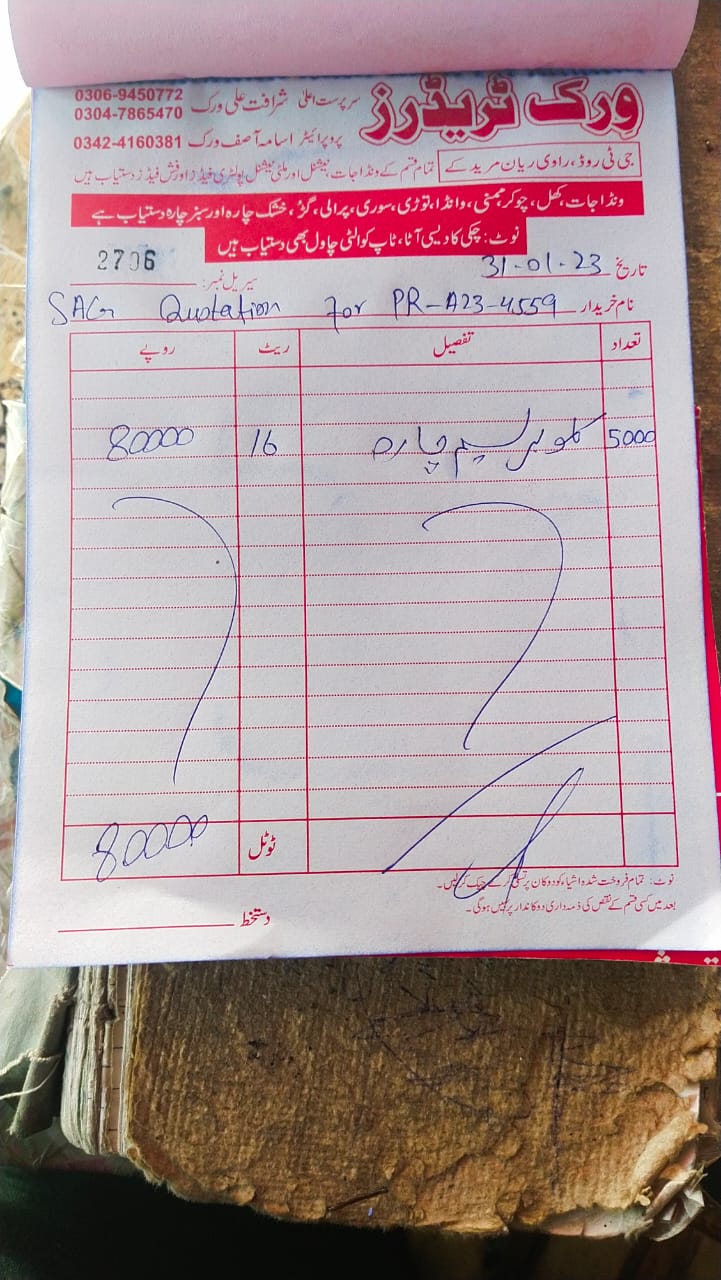 ورک ٹریڈرز
سرپرست اعلیٰ شرافت علی ورک 0306-9450772
0304-7865470
پروپرائیٹر اسامہ آصف ورک 0342-4160381
جی ٹی روڈ، راوی ریان مریدکے
تمام قسم کے ونڈا جات نیشنل اور ملٹی نیشنل پولٹری فیڈز اور فش فیڈز دستیاب ہیں
ونڈا جات، کھل، چوکر، وانڈا، توڑی، سوری، پرالی، گڑ، خشک چارہ اور سبز چارہ دستیاب ہے
نوٹ: چکی کا دیسی آٹا، ٹاپ کوالٹی چاول بھی دستیاب ہیں
تاریخ 31-01-23
سیریل نمبر: 2706
نام خریدار SAG Quotation for PR-A23-4559
تعداد تفصیل ریٹ روپے
5000 کلو برسیم چارہ 16 80000
ٹوٹل 80000
نوٹ: تمام فروخت شدہ اشیاء کو دوکان پر تسلی سے چیک کر لیں۔
بعد میں کسی قسم کے نقص کی ذمہ داری دوکاندار پر نہیں ہوگی۔
دستخط